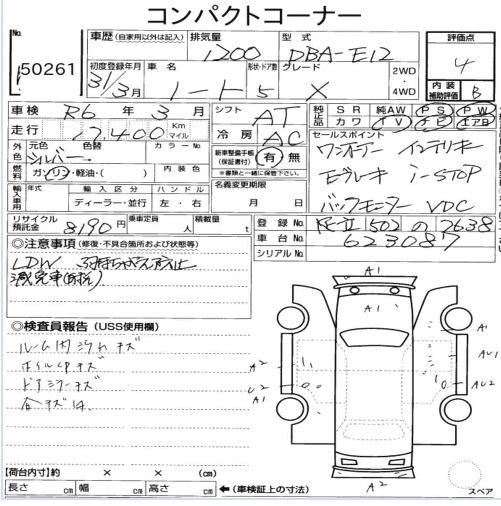 コンパクトコーナー
No.
50261
車歴 (自家用以外は記入) 排気量 型式
1200 DBA-E12
評価点
4
初度登録年月 車名 形状・ドア数 グレード
31/3月 ノート 5 X
2WD
4WD
内装補助評価
B
車検 R6年3月
シフト
AT
純正品 SR 純AW PS PW
カワ TV ナビ エアB
走行 17,400 Km マイル
冷房
AC
セールスポイント
ワンオーナー インテリキー
外色 元色 色替 カラーNo
シルバー
新車整備手帳(保証書付) 有・無
※書類と一緒に保管下さい
燃料 ガソリン・軽油・( ) 内装色
i-STOP
名義変更期限
月 日
バックモニター VDC
輸入車用 年式 輸入区分 ハンドル
ディーラー・並行 左・右
リサイクル預託金 8190円 乗車定員 人 積載量 t
登録No.
1502 の 2638
車台No.
623087
シリアルNo.
◎注意事項 (修復・不具合箇所および状態等)
LDW
◎検査員報告 (USS使用欄)
ルーム内汚れキズ
ホイルCPキズ
ドアミラーキズ
A1
A1
A1
A2
AU1
U2
A1
AU2
A2
【荷台内寸】約 × × (cm)
長さ cm 幅 cm 高さ cm ←(車検証上の寸法)
スペア